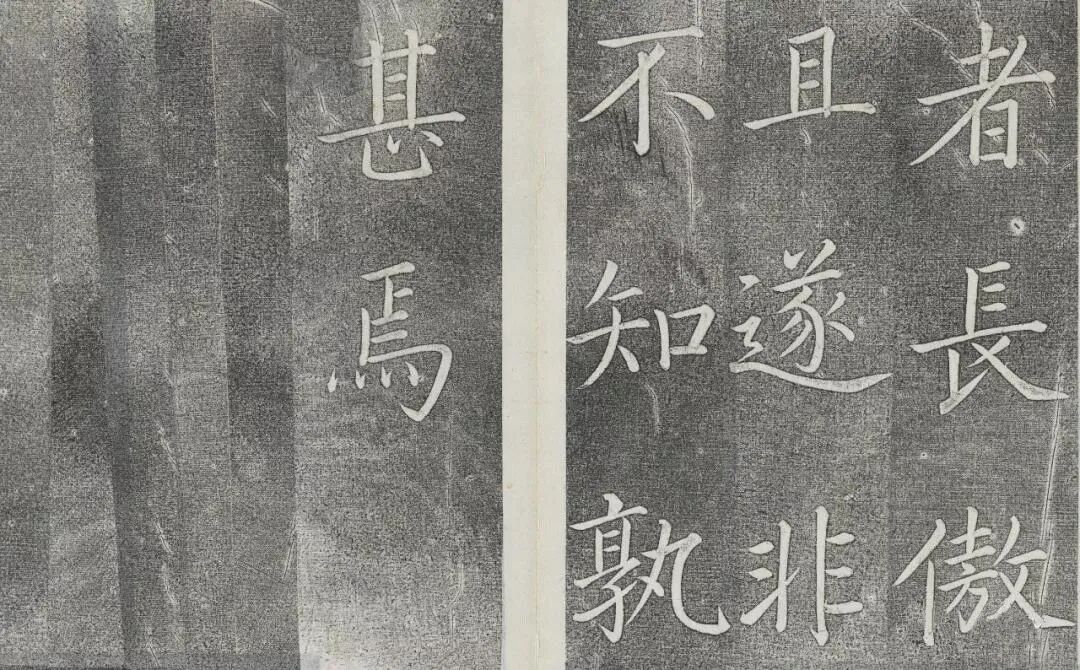 者長傲
且遂非
不知孰
甚焉